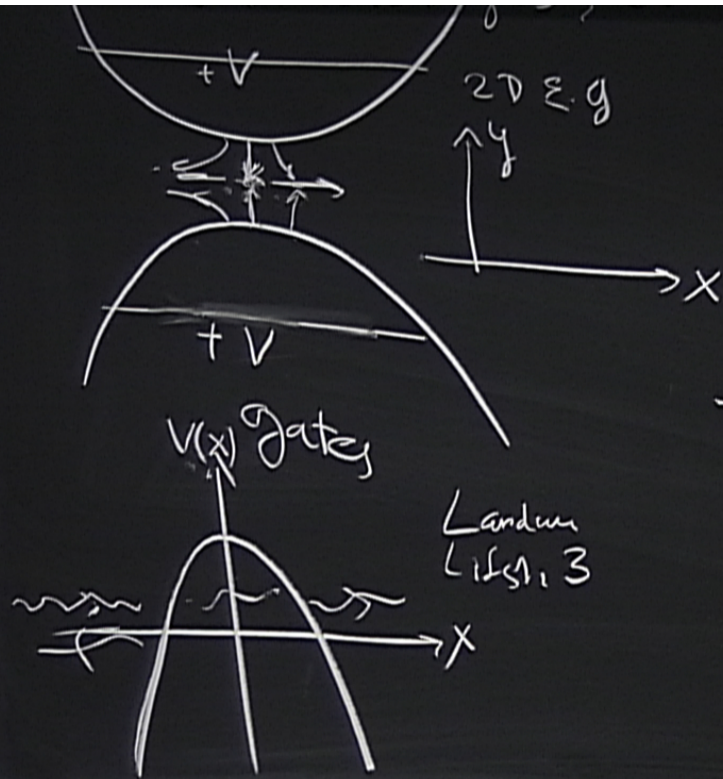 + V
2D E. g
y
X
+ V
V(x) gates
Landau
Lifsh. 3
X